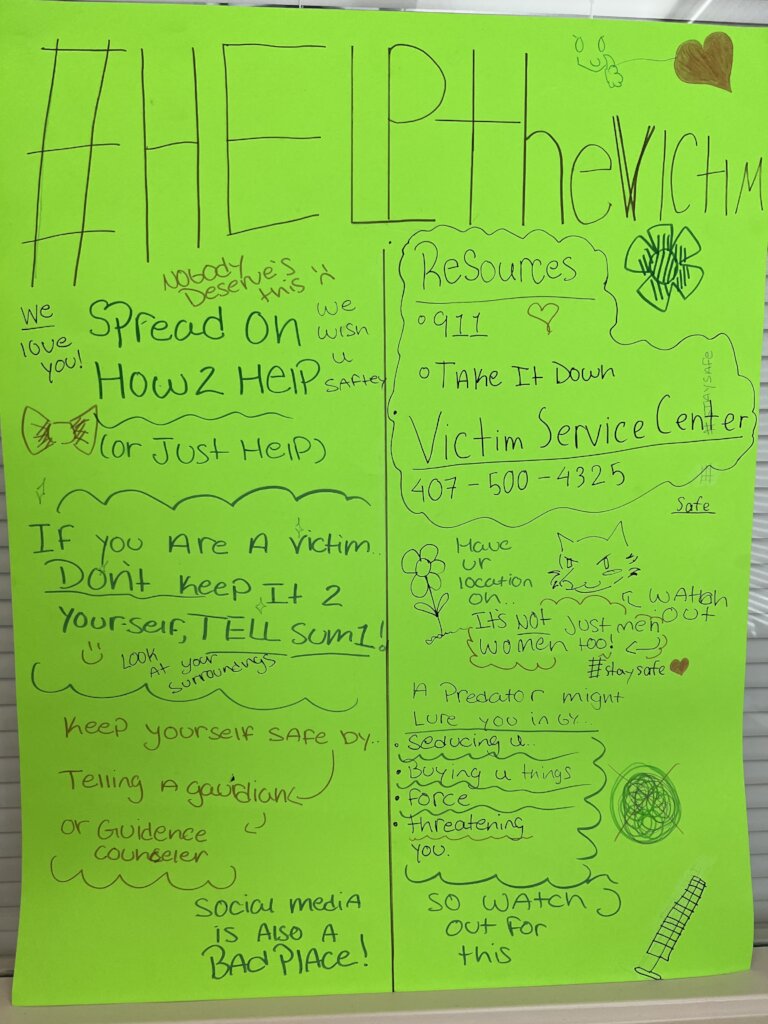 #HELPtheVICTIM
NOBODY
Deserve's
this
We
love
you!
Spread On
How 2 Help
we
wish
u
saftey
(or Just Help)
If you Are A victim..
Don't keep It 2
yourself, TELL sum1!
Look
At your
surroundings
Keep yourself safe by..
Telling A gaurdian
or Guidence
counseler
Social media
is Also A
Bad Place!
Resources
911
Take It Down
Victim Service Center
407-500-4325
#STAYSAFE
Safe
Have
ur
location
on..
Watch
out
It's Not Just men
women too!
#staysafe
A Predator might
Lure you in by...
• Seducing u..
• Buying u things
• force
• threatening
you.
So watch
out for
this